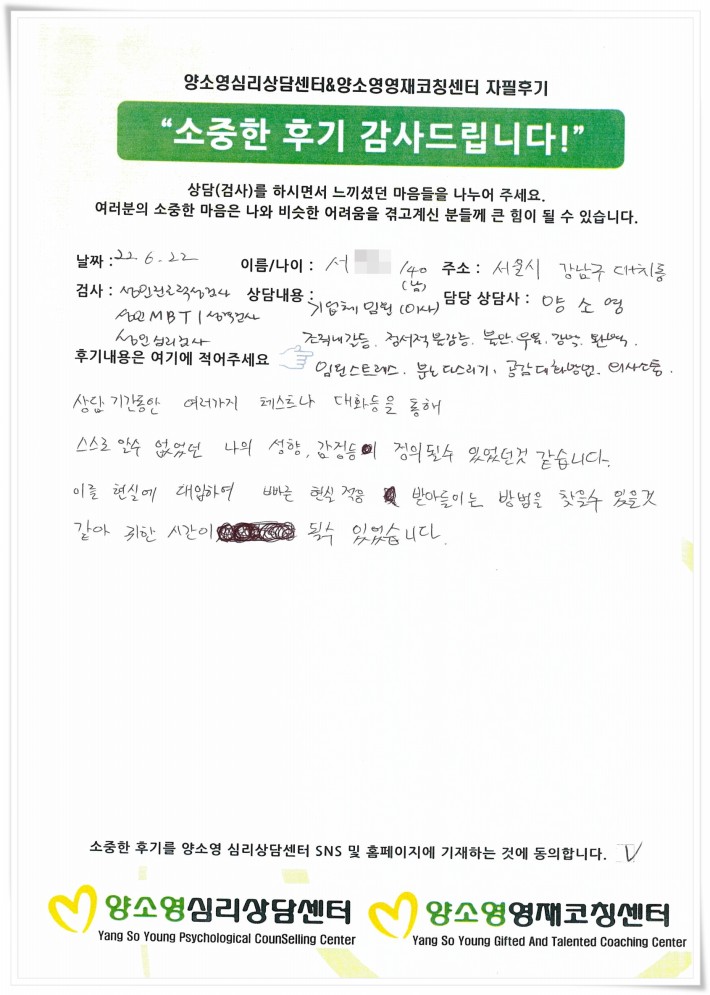 양소영심리상담센터&양소영영재코칭센터 자필후기
“소중한 후기 감사드립니다!”
상담(검사)를 하시면서 느끼셨던 마음들을 나누어 주세요.
여러분의 소중한 마음은 나와 비슷한 어려움을 겪고계신 분들께 큰 힘이 될 수 있습니다.
날짜 : 22. 6. 22 이름/나이 : 서 /40 (남) 주소 : 서울시 강남구 대치동
검사 : 성인진로적성검사 상담내용 : 기업체 임원 (이사) 담당 상담사 : 양 소 영
성인 MBTI 성격검사
성인심리검사 조직내갈등. 정서적 불감증. 불안. 우울. 강박. 완벽.
후기내용은 여기에 적어주세요 임원스트레스. 분노다스리기. 공감대화방법. 의사소통.
상담 기간동안 여러가지 테스트나 대화등을 통해
스스로 알수 없었던 나의 성향, 감정등이 정의될수 있었던것 같습니다.
이를 현실에 대입하여 빠른 현실 적응 받아들이는 방법을 찾을수 있을것
같아 귀한 시간이 될수 있었습니다.
소중한 후기를 양소영 심리상담센터 SNS 및 홈페이지에 기재하는 것에 동의합니다. V
양소영심리상담센터 양소영영재코칭센터
Yang So Young Psychological CounSelling Center Yang So Young Gifted And Talented Coaching Center